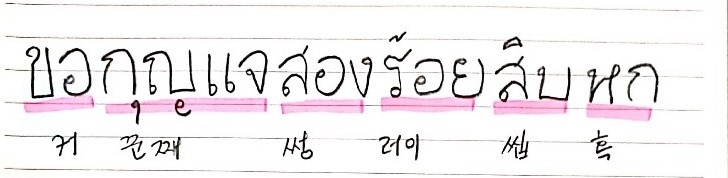 ขอกุญแจสองร้อยสิบหก
커 꾼째 썽 러이 씹 혹